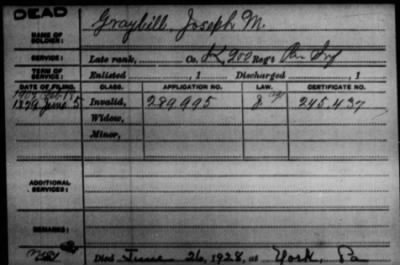 DEAD
NAME OF SOLDIER: Graybill, Joseph M.
SERVICE: Late rank, Co. K, 200 Reg't Pa Inf
TERM OF SERVICE: Enlisted , 1 Discharged , 1
DATE OF FILING. CLASS. APPLICATION NO. LAW. CERTIFICATE NO.
1879 June 5 Invalid, 289,995 245,437
Widow,
Minor,
ADDITIONAL SERVICES:
REMARKS:
Died June 26, 1928, at York, Pa